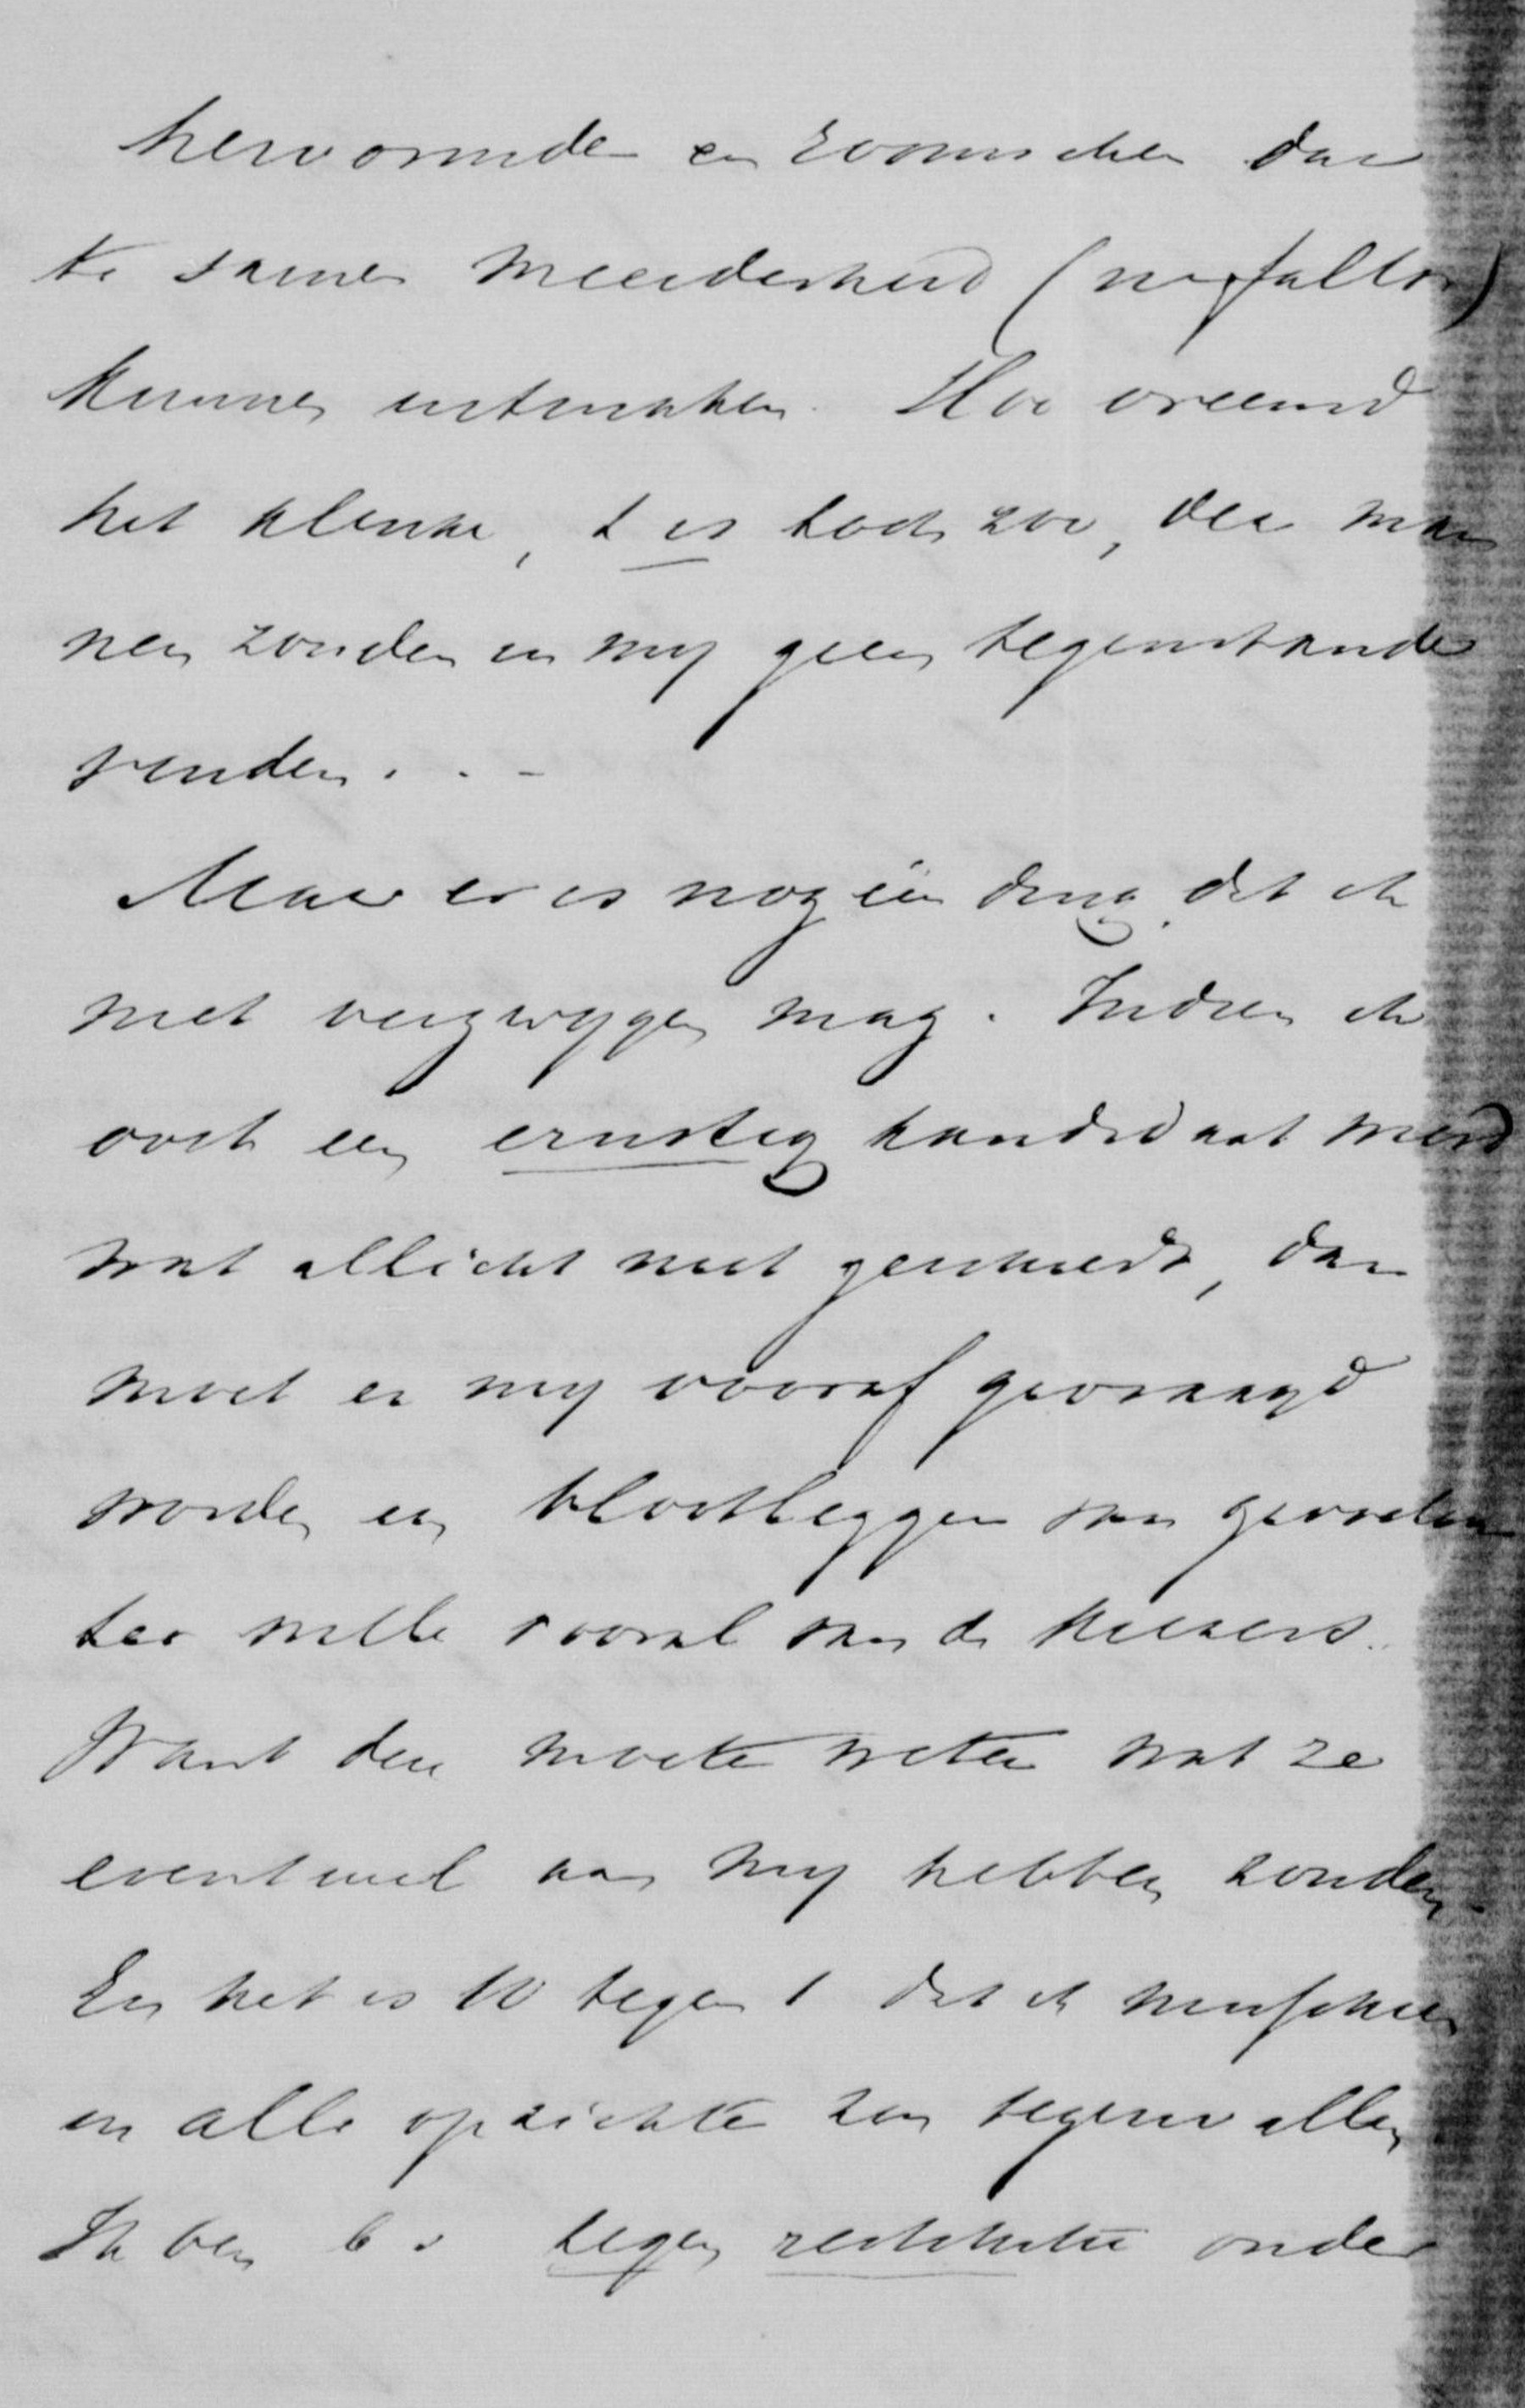 hervormde en roomschen daar
te samen meerderheid (ni fallor)
kunnen uitmaken. Hoe vreemd
het klinke, t is toch zoo, die man
nen zouden in my geen tegenstander
vinden. . -
Maar er is nog één ding dat ik
niet verzwygen mag. Indien ik
ooit een ernstig kandidaat werd
wat allicht niet geschiedt, dan
moet er my vooraf gevraagd
worden een blootleggen van gevoelen
ter wille vooral van de kiezers.
Want die moeten weten wat ze
eventueel aan my hebben zouden.
En het is 10 tegen 1 dat ik misschien
in alle opzichte zou tegenvallen
Ik ben b v tegen restitutie onder